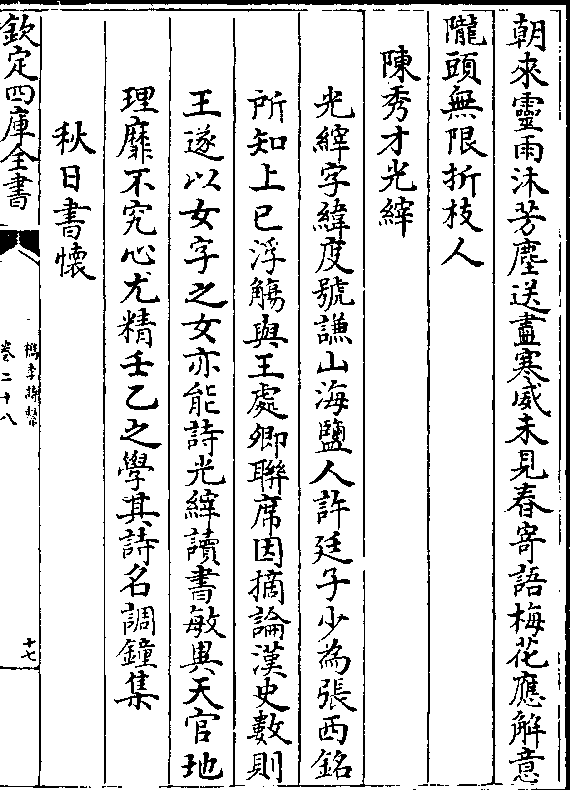 朝來靈雨沐芳塵送盡寒威未見春寄語梅花應解意
隴頭無限折枝人
陳秀才光縡
光縡字緯度號謙山海鹽人許廷子少為張西銘
所知上巳浮觴與王處卿聯席因摘論漢史數則
王遂以女字之女亦能詩光縡讀書敏異天官地
理靡不究心尤精壬乙之學其詩名調鐘集
秋日書懷
欽定四庫全書
檇李詩繫
卷二十八
十七